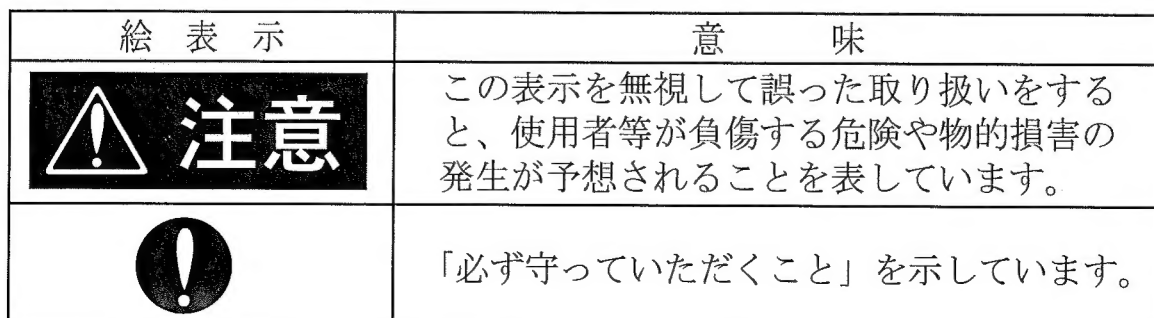 絵 表 示
意 味
注意
この表示を無視して誤った取り扱いをする
と、使用者等が負傷する危険や物的損害の
発生が予想されることを表しています。
「必ず守っていただくこと」を示しています。